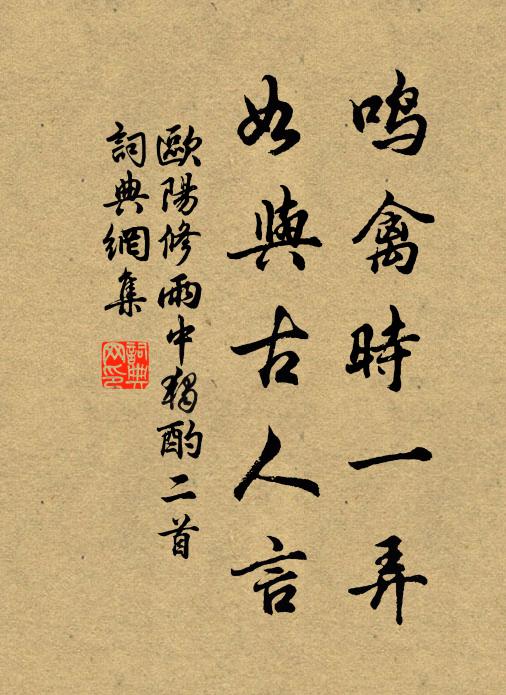 鳴禽時一弄
如與古人言
歐陽修雨中獨酌二首
詞典網集
詞典网印